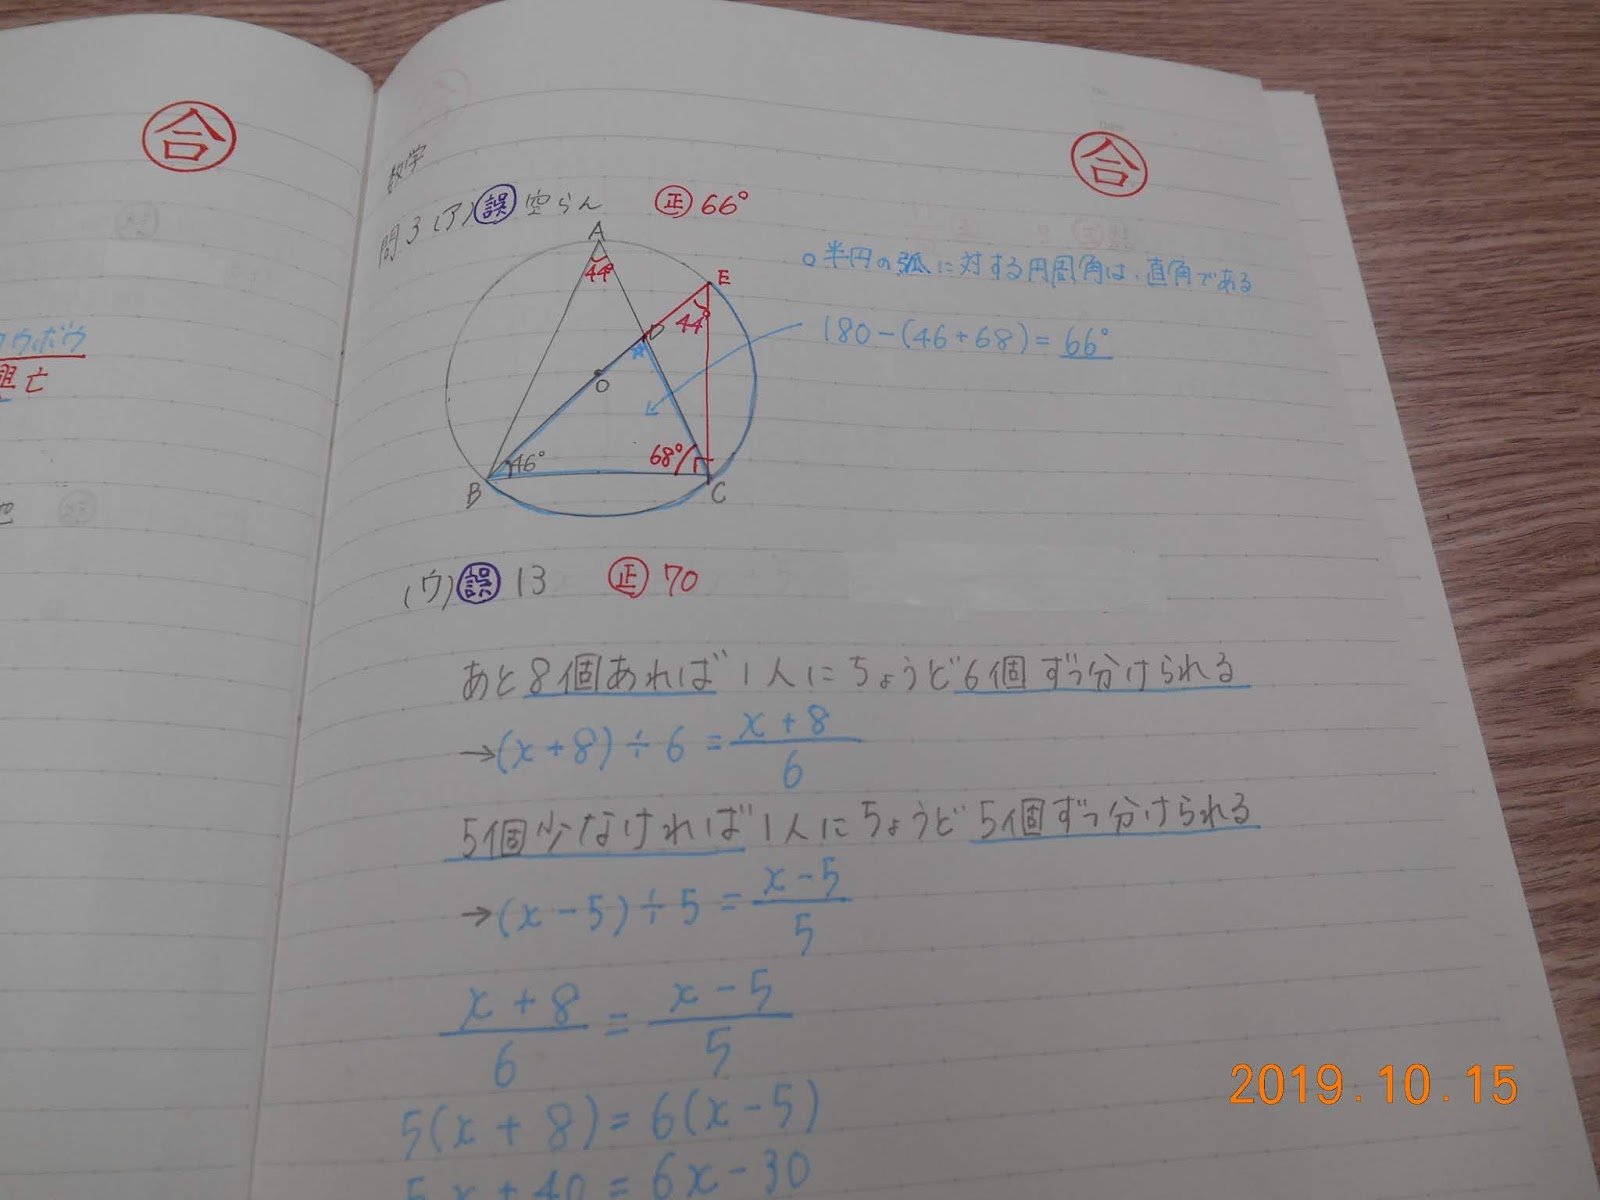 合
ウボウ
亡
合
数学
問3(ア)誤 空らん 正 66°
A
44°
E
44°
D
O
46°
68°
B
C
○半円の弧に対する円周角は、直角である
180-(46+68)=66°
(ウ)誤 13 正 70
あと8個あれば1人にちょうど6個ずつ分けられる
→(x+8)÷6=x+8/6
5個少なければ1人にちょうど5個ずつ分けられる
→(x-5)÷5=x-5/5
x+8/6=x-5/5
5(x+8)=6(x-5)
5x+40=6x-30
2019.10.15